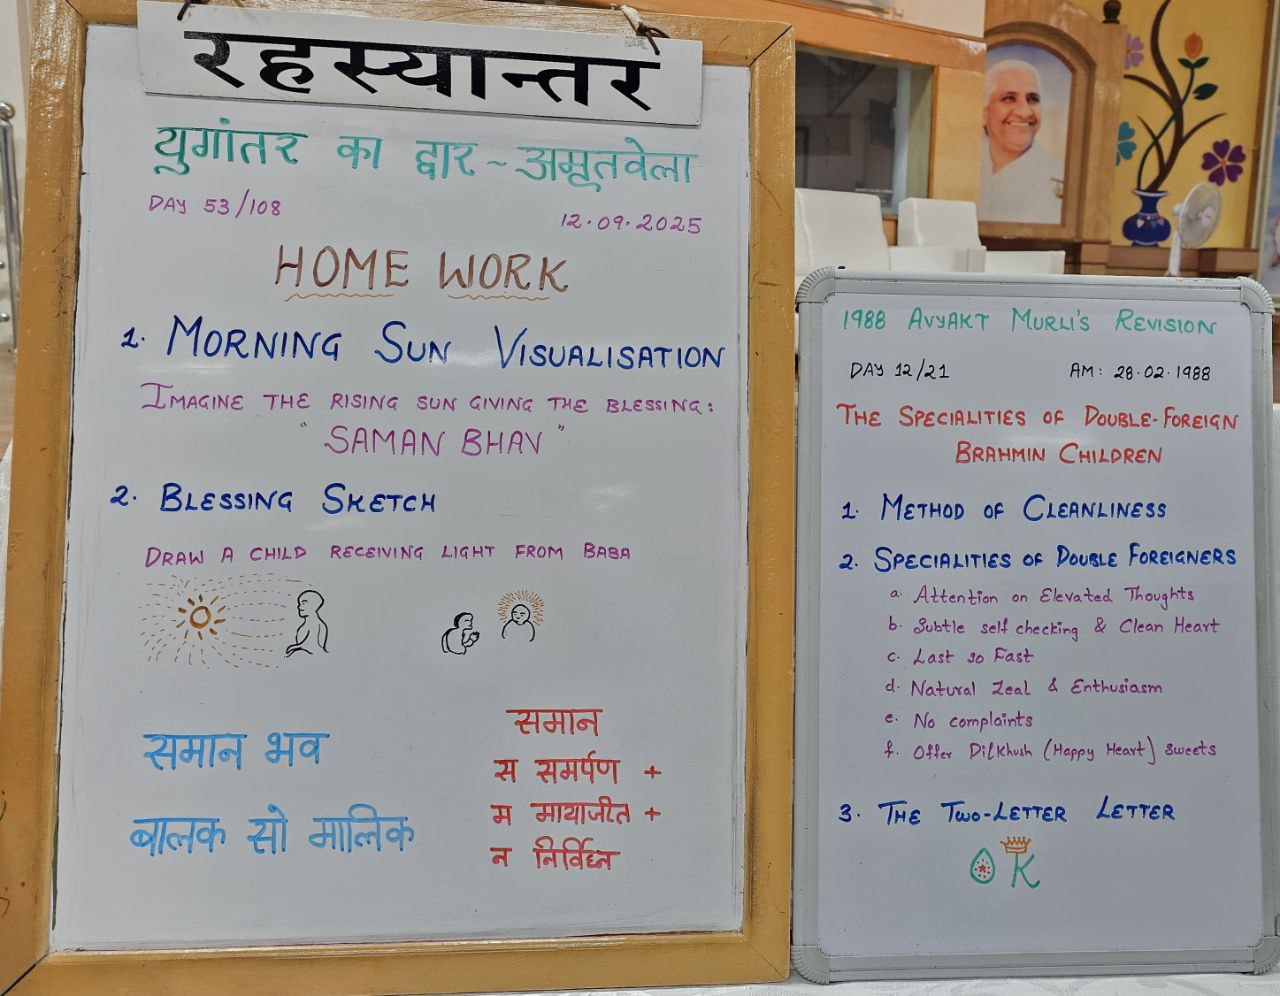 रहस्यान्तर
युगांतर का द्वार ~ अमृतवेला
DAY 53/108
12.09.2025
HOME WORK
1. MORNING SUN VISUALISATION
IMAGINE THE RISING SUN GIVING THE BLESSING:
"SAMAN BHAV"
2. BLESSING SKETCH
DRAW A CHILD RECEIVING LIGHT FROM BABA
समान भव
बालक सो मालिक
समान
स समर्पण +
म मायाजीत +
न निर्विघ्न
1988 AVYAKT MURLI'S REVISION
DAY 12/21
AM: 28.02.1988
THE SPECIALITIES OF DOUBLE-FOREIGN
BRAHMIN CHILDREN
1. METHOD OF CLEANLINESS
2. SPECIALITIES OF DOUBLE FOREIGNERS
a. Attention on Elevated Thoughts
b. Subtle self checking & Clean Heart
c. Last so Fast
d. Natural Zeal & Enthusiasm
e. No complaints
f. Offer Dilkhush (Happy Heart) Sweets
3. THE TWO-LETTER LETTER
OK